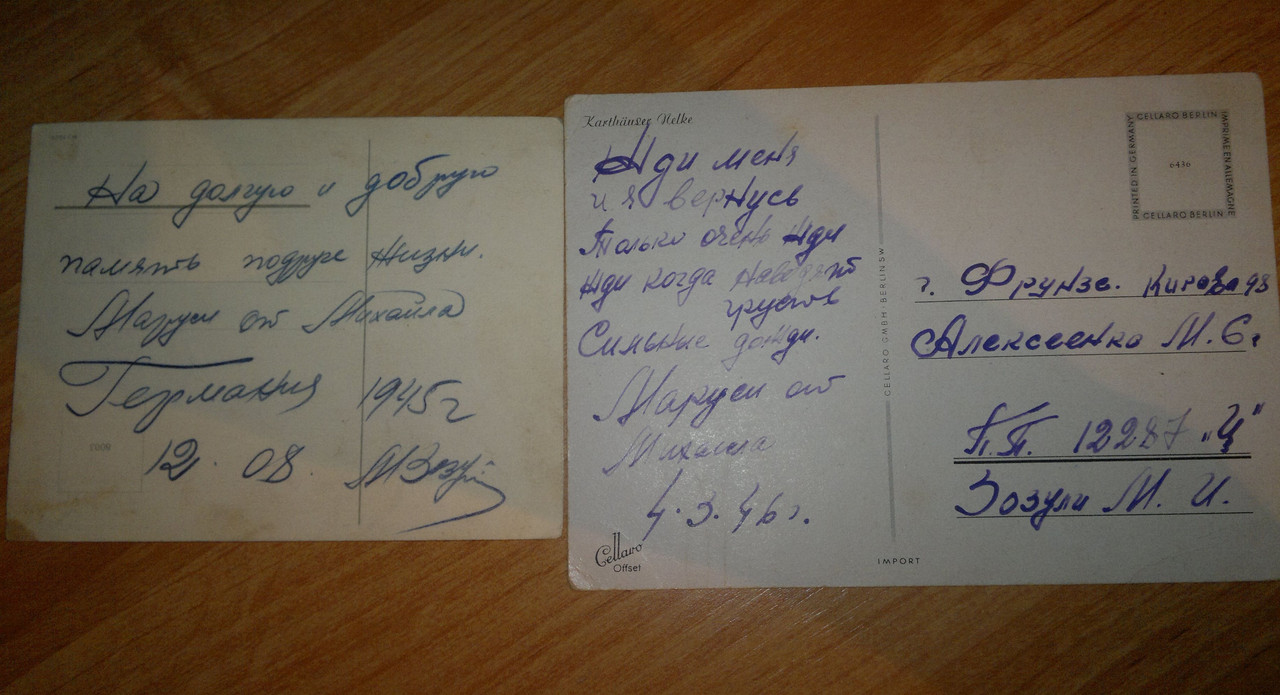 На долгую и добрую
память подруге жизни.
Маруси от Михаила
Германия 1945 г
12. 08. МЗозуй
Karthäuser Nelke
Жди меня
и я вернусь
Только очень жди
Жди когда наводят
грусть
Сильные дожди.
Маруси от
Михаила
4.3.46 г.
Cellaro
Offset
CELLARO GMBH · BERLIN SW
IMPORT
CELLARO BERLIN
PRINTED IN GERMANY
IMPRIME EN ALLEMAGNE
0430
CELLARO BERLIN
г. Фрунзе. Кирова 98
Алексеенко М. С.
П.П. 12287 "Ч"
Зозули М. И.